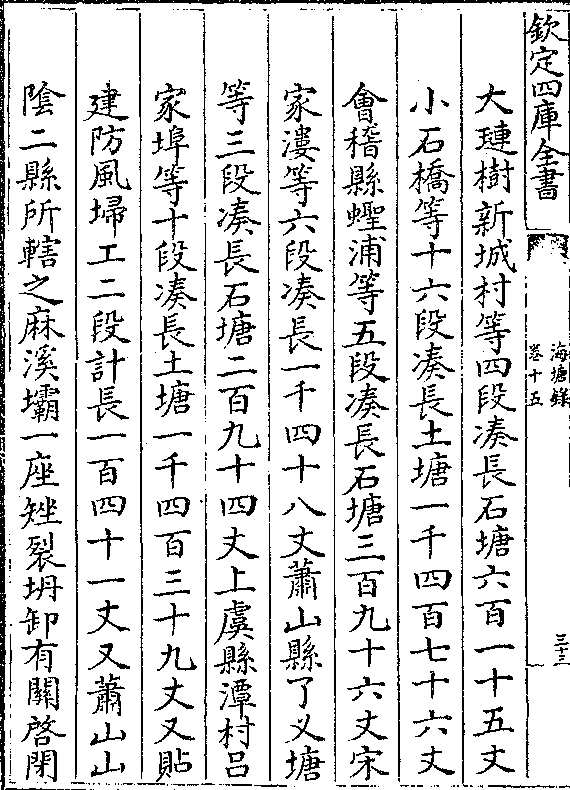 欽定四庫全書
海塘錄
卷十五
三十三
大璉樹新城村等四段凑長石塘六百一十五丈
小石橋等十六段凑長土塘一千四百七十六丈
會稽縣蟶浦等五段凑長石塘三百九十六丈宋
家漊等六段凑長一千四十八丈蕭山縣了义塘
等三段凑長石塘二百九十四丈上虞縣潭村吕
家埠等十段凑長土塘一千四百三十九丈又貼
建防風埽工二段計長一百四十一丈又蕭山山
陰二縣所轄之麻溪壩一座矬裂坍卸有關啓閉